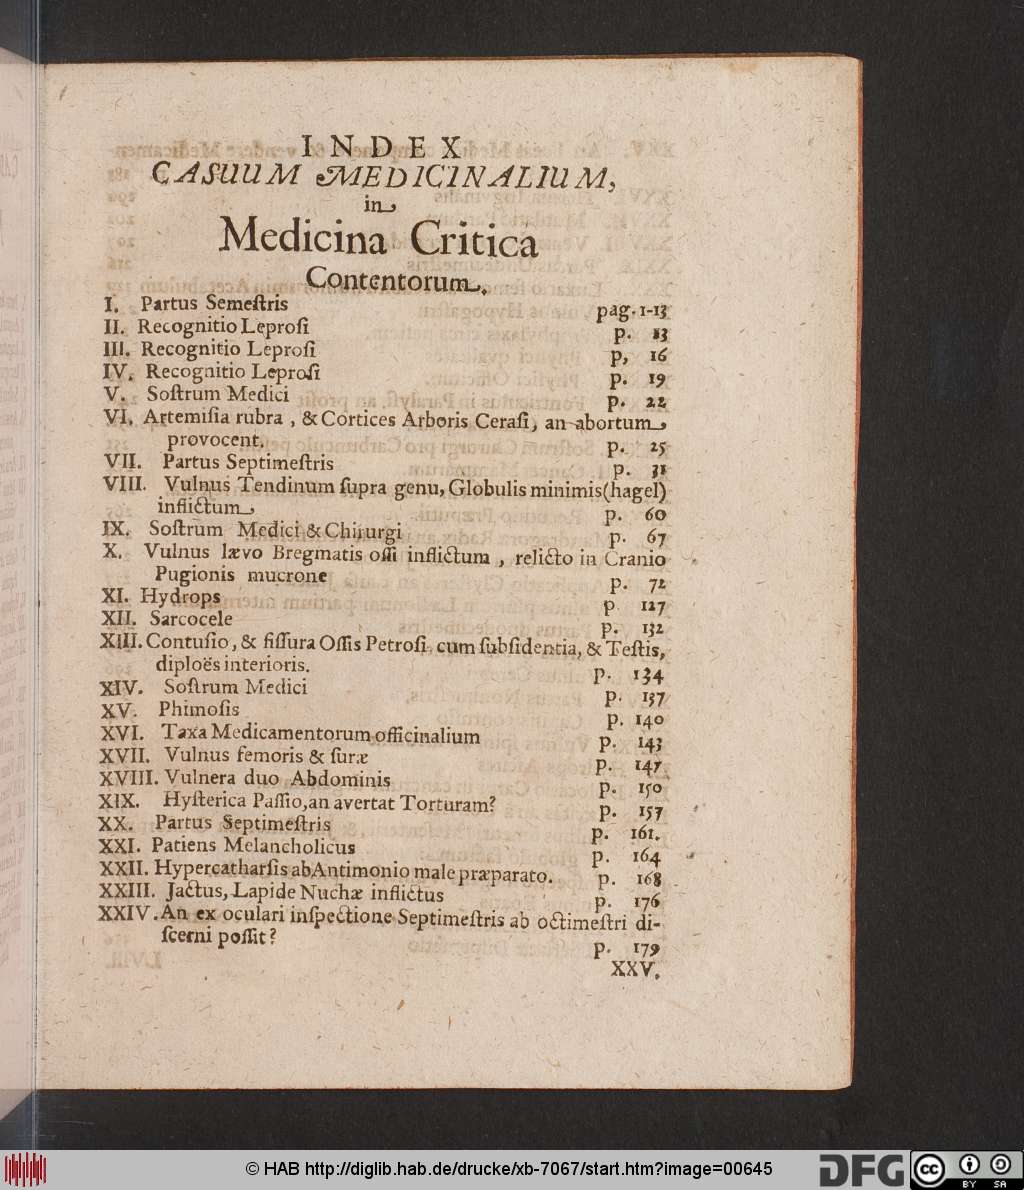 INDEX
CASUUM MEDICINALIUM,
in
Medicina Critica
Contentorum.
I. Partus Semeſtris pag. 1-13
II. Recognitio Leproſi p. 13
III. Recognitio Leproſi p, 16
IV. Recognitio Leproſi p. 19
V. Soſtrum Medici p. 22
VI. Artemiſia rubra, & Cortices Arboris Ceraſi, an abortum
provocent. p. 25
VII. Partus Septimeſtris p. 31
VIII. Vulnus Tendinum ſupra genu, Globulis minimis (hagel)
inflictum p. 60
IX. Soſtrum Medici & Chirurgi p. 67
X. Vulnus lævo Bregmatis oſſi inflictum, relicto in Cranio
Pugionis mucrone p. 72
XI. Hydrops p 127
XII. Sarcocele p. 132
XIII. Contuſio, & fiſſura Oſſis Petroſi, cum ſubſidentia, & Teſtis,
diploës interioris. p. 134
XIV. Soſtrum Medici p. 137
XV. Phimoſis p. 140
XVI. Taxa Medicamentorum officinalium p. 143
XVII. Vulnus femoris & ſuræ p. 147
XVIII. Vulnera duo Abdominis p. 150
XIX. Hyſterica Paſſio, an avertat Torturam? p. 157
XX. Partus Septimeſtris p. 161.
XXI. Patiens Melancholicus p. 164
XXII. Hypercatharſis ab Antimonio male præparato. p. 168
XXIII. Jactus, Lapide Nuchæ inflictus p. 176
XXIV. An ex oculari inſpectione Septimeſtris ab octimeſtri di-
ſcerni poſſit? p. 179
XXV.
© HAB http://diglib.hab.de/drucke/xb-7067/start.htm?image=00645
DFG cc BY SA